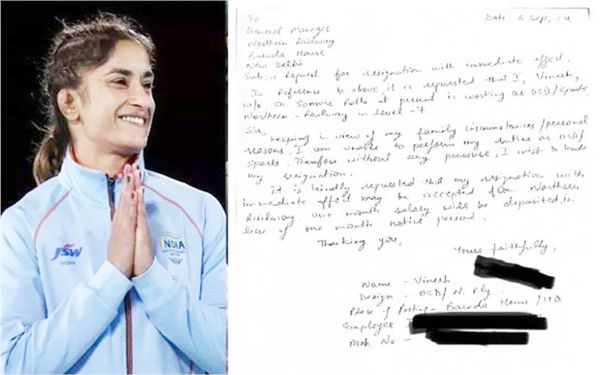 JSW
INDIA
To
General Manager
Northern Railway
Baroda House
New Delhi
Sub:- Request for resignation with immediate effect.
In Reference to above, it is requested that I, Vinesh,
W/o Sh. Somvir Rathi at present is working as OSD/Sports
Northern Railway in level-7.
Sir,
Keeping in view of my family circumstances/personal
reasons, I am unable to perform my duties as OSD/
Sports. Therefore without any pressure, I wish to
my resignation.
It is kindly requested that my resignation with
immediate effect may be accepted from Northern
Railway one month salary will be deposited in
lieu of one month notice period.
Thanking you,
Yours faithfully,
Name - Vinesh
Design - OSD/N. Rly.
Place of Posting - Baroda House/
Employee
Mob. No -